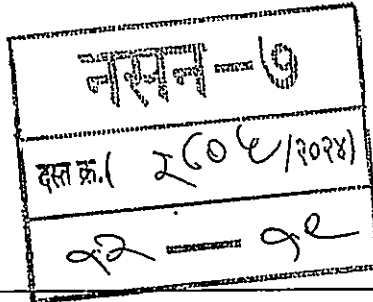 नसन-७
दस्त क्र.( २८०५/२०२४)
१२ — १९